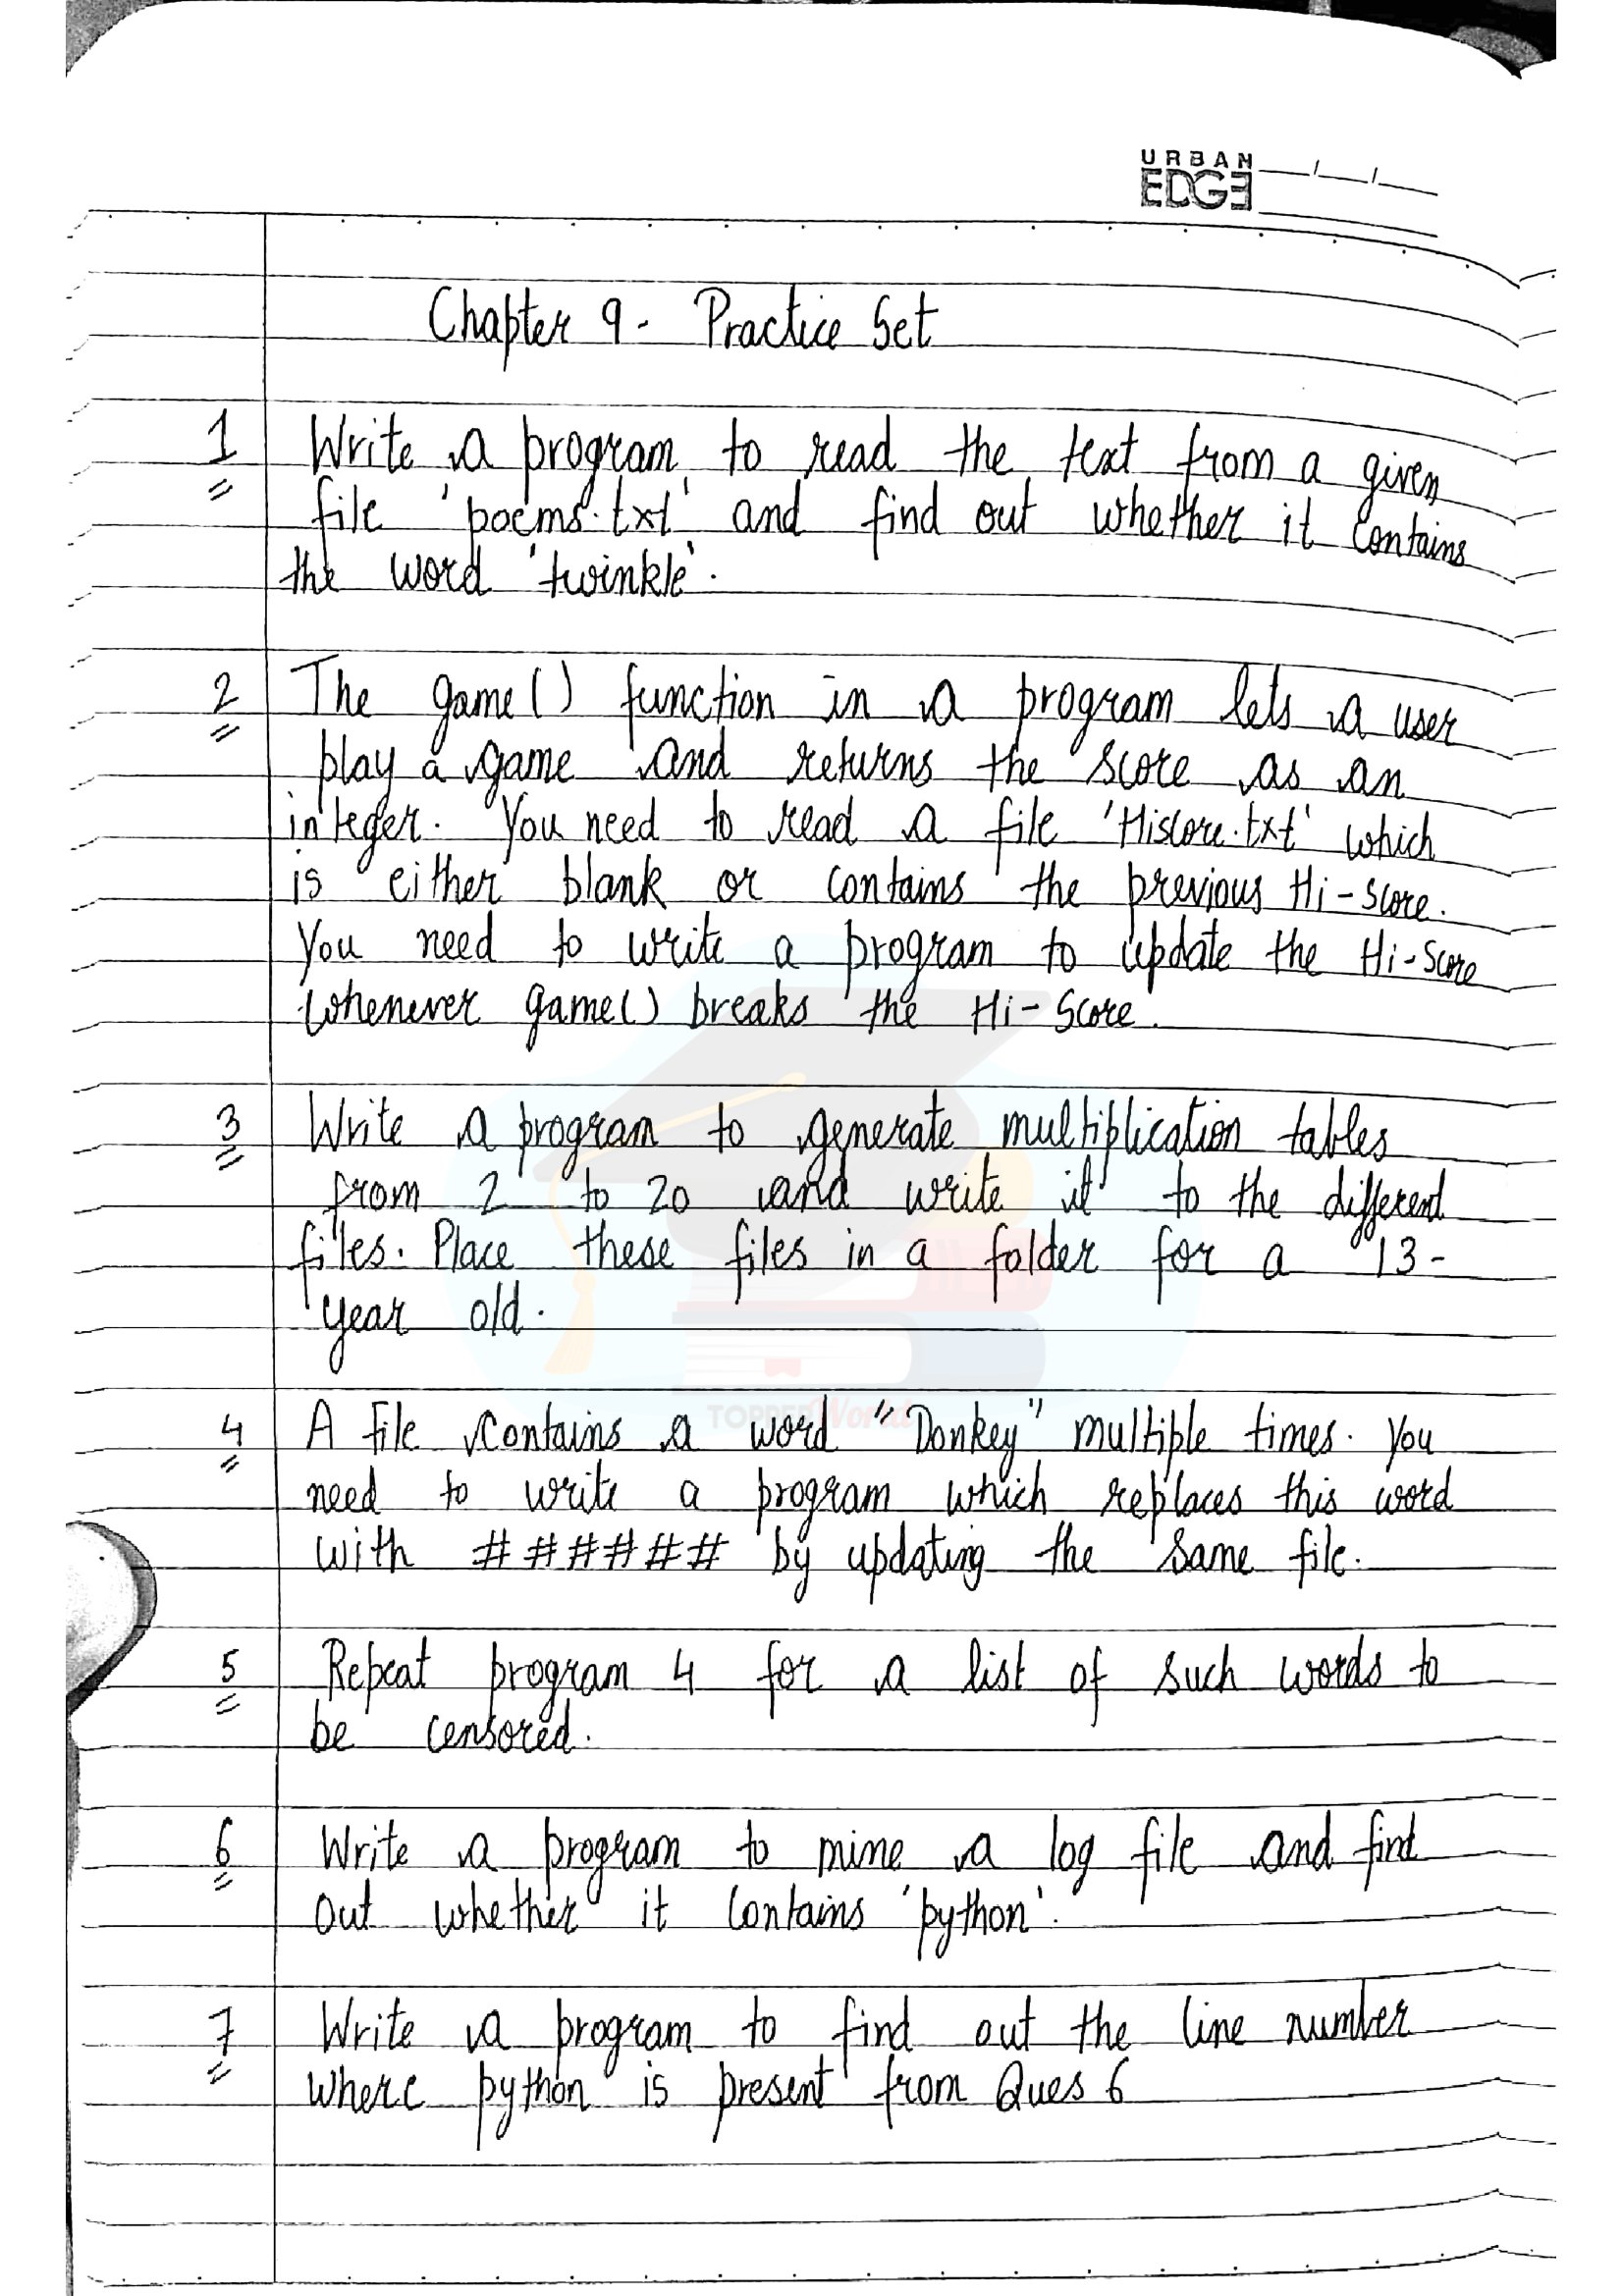 URBAN
EDGE
Chapter 9 - Practice Set
1 Write a program to read the text from a given
file 'poems.txt' and find out whether it contains
the word 'twinkle'.
2 The game() function in a program lets a user
play a game and returns the score as an
integer. You need to read a file 'Hiscore.txt' which
is either blank or contains the previous Hi-score.
You need to write a program to update the Hi-Score
whenever game() breaks the Hi-Score.
3 Write a program to generate multiplication tables
from 2 to 20 and write it to the different
files. Place these files in a folder for a 13-
year old.
TOPPERWorld
4 A file contains a word "Donkey" multiple times. You
need to write a program which replaces this word
with ###### by updating the same file.
5 Repeat program 4 for a list of such words to
be censored.
6 Write a program to mine a log file and find
out whether it contains 'python'.
7 Write a program to find out the line number
where python is present from Ques 6